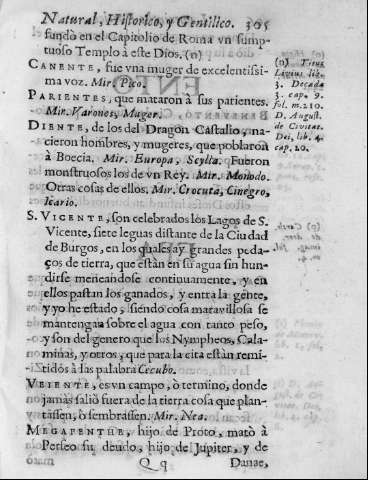 Natural, Historico, y Gentilico. 305
fundò en el Capitolio de Roma vn sump-
tuoso Templo à este Dios. (n)
CANENTE, fue vna muger de excelentissi-
ma voz. Mir. Pico.
PARIENTES, que mataron à sus parientes.
Mir. Varones, Muger.
DIENTE, de los del Dragon Castalio, na-
cieron hombres, y mugeres, que poblaron
à Boecia. Mir. Europa, Scylla. Fueron
monstruosos los de vn Rey. Mir. Monodo.
Otras cosas de ellos. Mir. Crocuta, Cinegro,
Icario.
S. VICENTE, son celebrados los Lagos de S.
Vicente, siete leguas distante de la Ciudad
de Burgos, en los quales ay grandes peda-
ços de tierra, que estàn en su agua sin hun-
dirse meneandose continuamente, y en
ellos pastan los ganados, y entra la gente,
y yo he estado, siendo cosa maravillosa se
mantengan sobre el agua con tanto peso,
y son del genero que los Nympheos, Cala-
minas, y otros, que para la cita estàn remi-
tidos à las palabra Cecubo.
VEIENTE, es vn campo, ò termino, donde
jamàs saliò fuera de la tierra cosa que plan-
tassen, ò sembrassen. Mir. Nea.
MEGAPENTHE, hijo de Proto, matò à
Perseo su deudo, hijo de Jupiter, y de
Qq Danae,
(n) Titus
Livius lib.
3. Decada
3. cap. 9.
fol. m. 210.
D. August.
de Civitat.
Dei, lib. 4.
cap. 20.